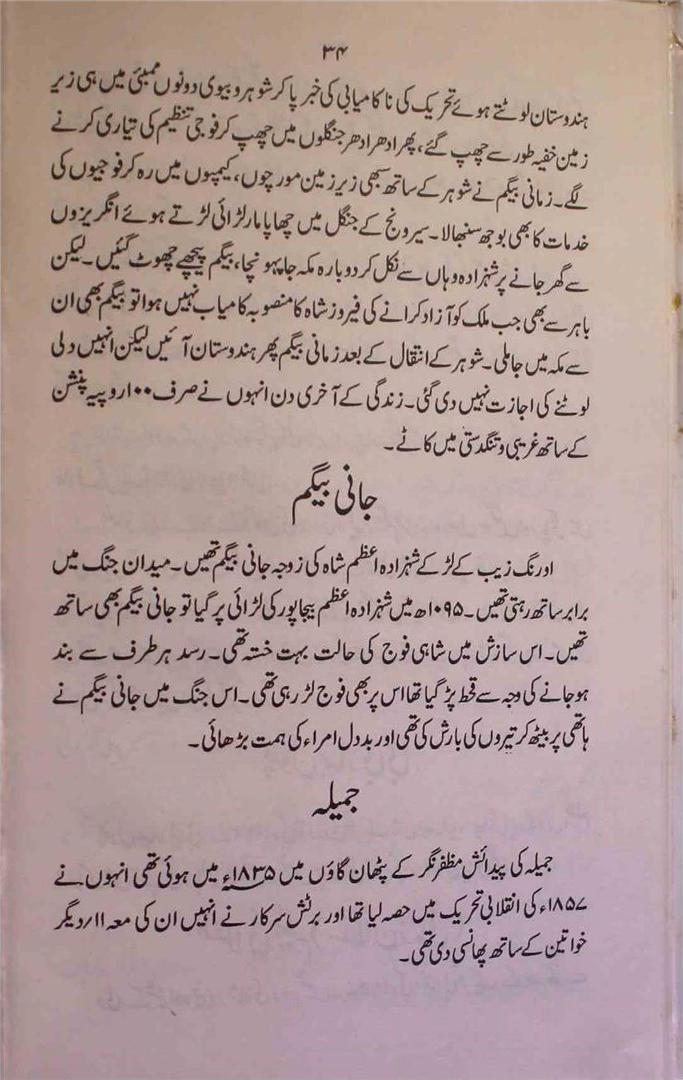 ۳۴
ہندوستان لوٹتے ہوئے تحریک کی ناکامیابی کی خبر پا کر شوہر و بیوی دونوں ممبئی میں ہی زیر
زمین خفیہ طور سے چھپ گئے، پھر ادھر ادھر جنگلوں میں چھپ کر فوجی تنظیم کی تیاری کرنے
لگے۔ زمانی بیگم نے شوہر کے ساتھ سبھی زیر زمین مورچوں، کیمپوں میں رہ کر فوجیوں کی
خدمات کا بھی بوجھ سنبھالا۔ سیرونج کے جنگل میں چھاپا مار لڑائی لڑتے ہوئے انگریزوں
سے گھر جانے پر شہزادہ وہاں سے نکل کر دوبارہ مکہ جا پہونچا، بیگم پیچھے چھوٹ گئیں۔ لیکن
باہر سے بھی جب ملک کو آزاد کرانے کی فیروز شاہ کا منصوبہ کامیاب نہیں ہوا تو بیگم بھی ان
سے مکہ میں جا ملی۔ شوہر کے انتقال کے بعد زمانی بیگم پھر ہندوستان آئیں لیکن انہیں دلی
لوٹنے کی اجازت نہیں دی گئی۔ زندگی کے آخری دن انہوں نے صرف ۱۰۰ روپیہ پنشن
کے ساتھ غریبی و تنگدستی میں کاٹے۔
جانی بیگم
اورنگ زیب کے لڑکے شہزادہ اعظم شاہ کی زوجہ جانی بیگم تھیں۔ میدان جنگ میں
برابر ساتھ رہتی تھیں۔ ۱۰۹۵ھ میں شہزادہ اعظم بیجاپور کی لڑائی پر گیا تو جانی بیگم بھی ساتھ
تھیں۔ اس سازش میں شاہی فوج کی حالت بہت خستہ تھی۔ رسد ہر طرف سے بند
ہو جانے کی وجہ سے قحط پڑ گیا تھا اس پر بھی فوج لڑ رہی تھی۔ اس جنگ میں جانی بیگم نے
ہاتھی پر بیٹھ کر تیروں کی بارش کی تھی اور بددل امراء کی ہمت بڑھائی۔
جمیلہ
جمیلہ کی پیدائش مظفر نگر کے پٹھان گاؤں میں ۱۸۳۵ء میں ہوئی تھی انہوں نے
۱۸۵۷ء کی انقلابی تحریک میں حصہ لیا تھا اور برٹش سرکار نے انہیں ان کی معہ ۱۱/دیگر
خواتین کے ساتھ پھانسی دی تھی۔